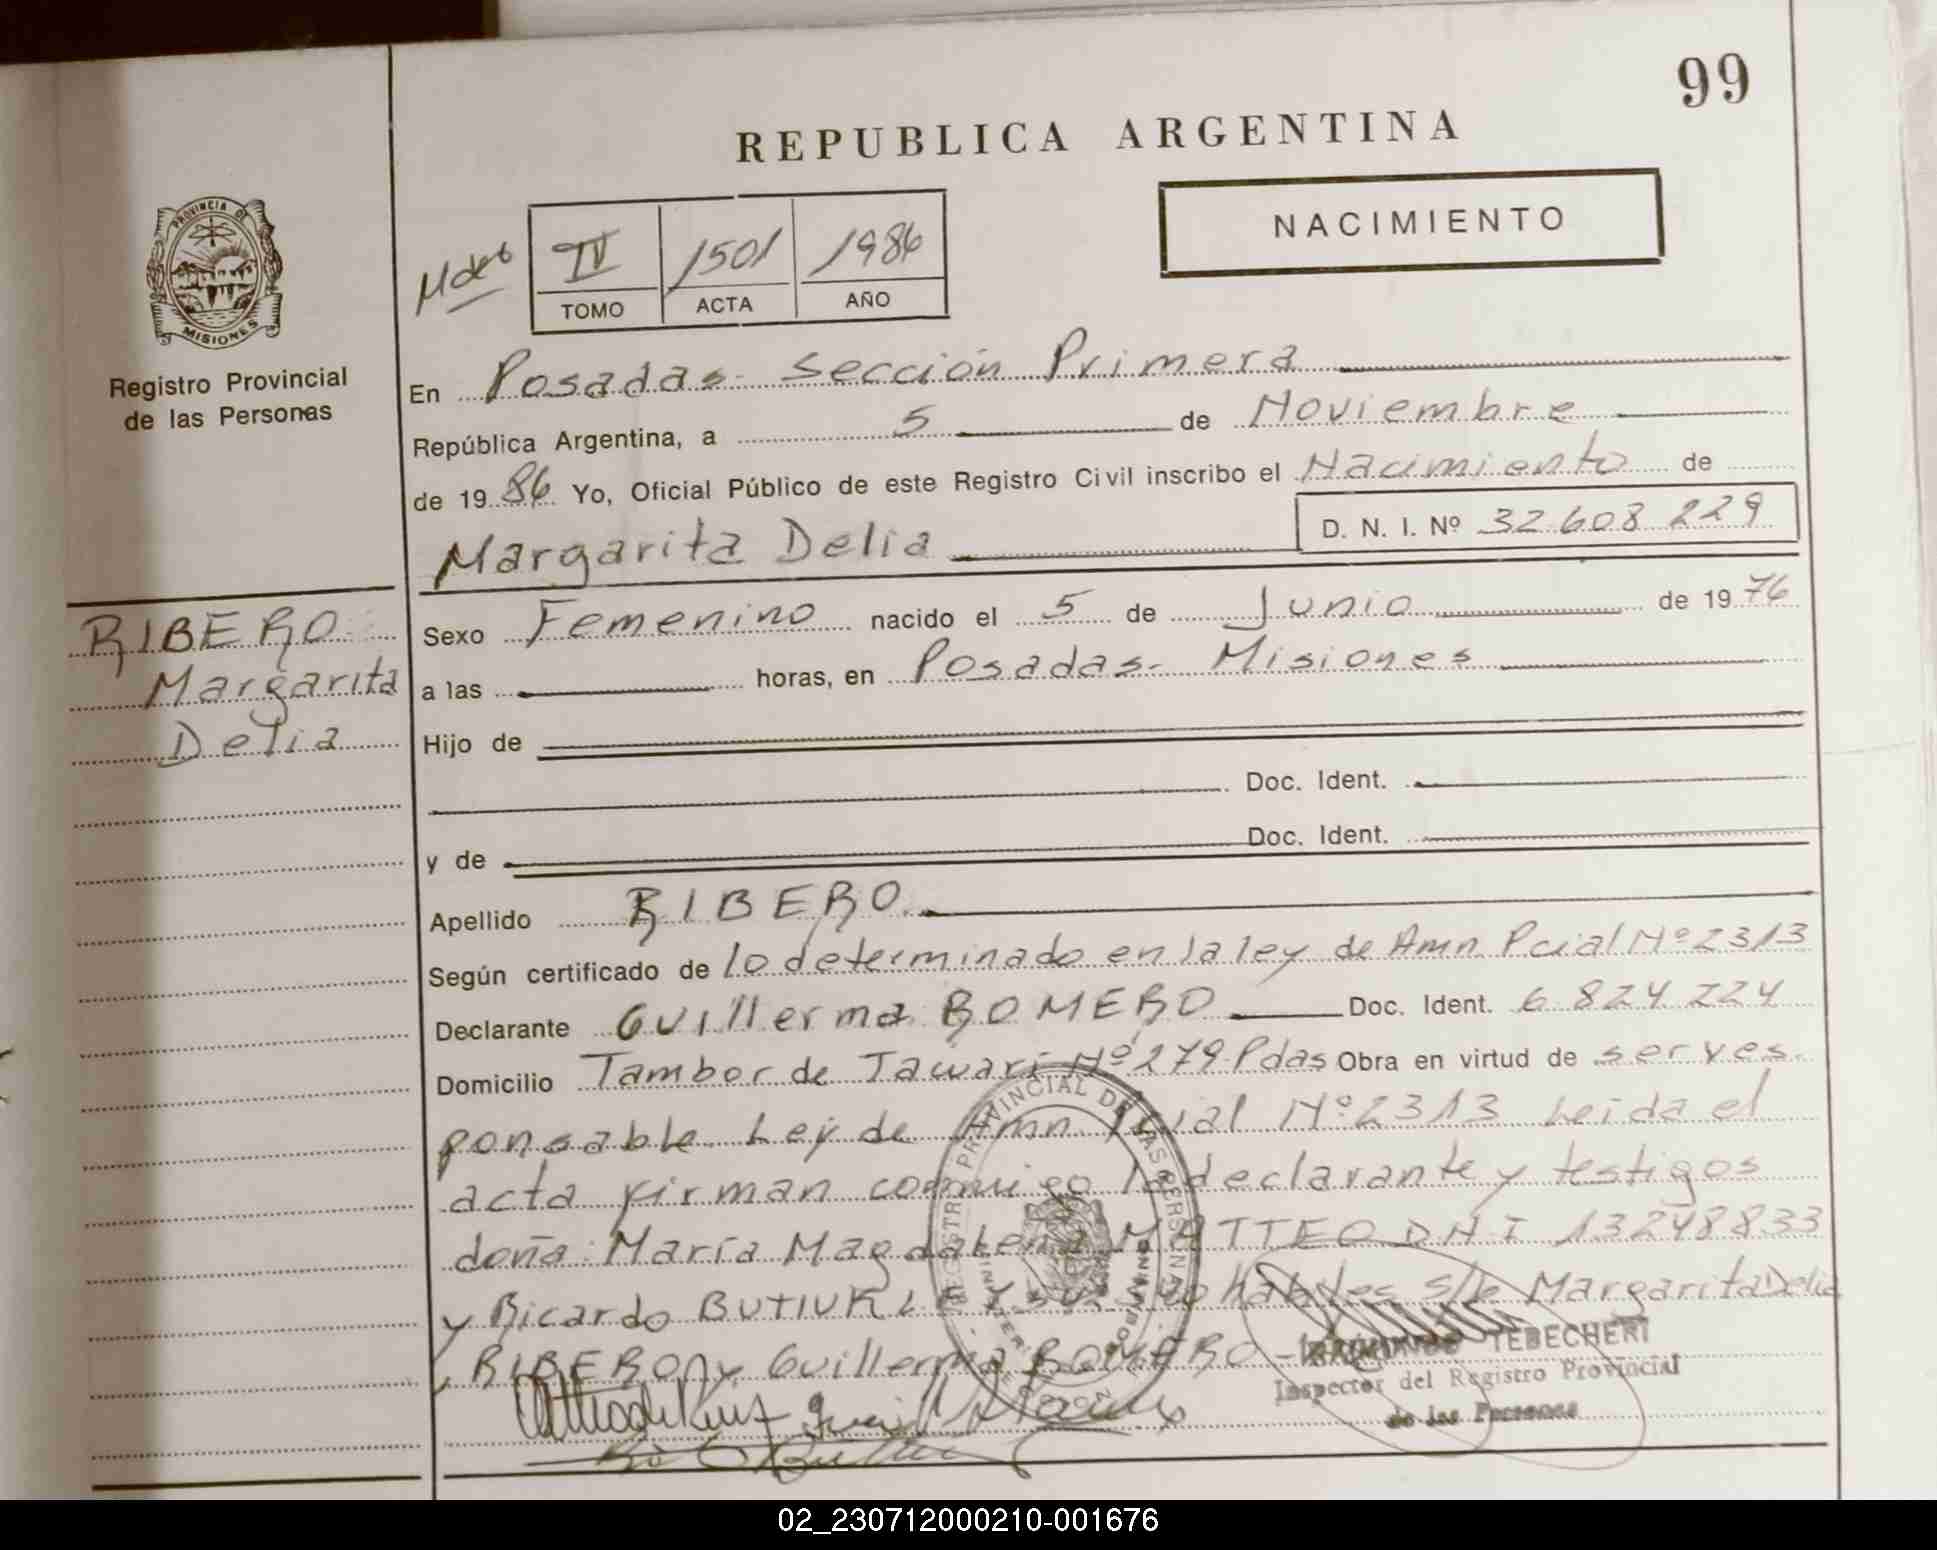 99
REPUBLICA ARGENTINA
NACIMIENTO
IV 1501 1986
TOMO ACTA AÑO
PROVINCIA DE
MISIONES
Registro Provincial
de las Personas
En Posadas- Sección Primera
República Argentina, a 5 de Noviembre
de 1986 Yo, Oficial Público de este Registro Civil inscribo el Nacimiento de
Margarita Delia D. N. I. Nº 32 608 229
RIBERO
Margarita
Delia
Sexo Femenino nacido el 5 de Junio de 1976
a las horas, en Posadas- Misiones
Hijo de
Doc. Ident.
y de Doc. Ident.
Apellido RIBERO
Según certificado de lo determinado en la ley de Amn. Pcial Nº 2313
Declarante Guillerma ROMERO Doc. Ident. 6 824 224
Domicilio Tambor de Tacuarí Nº 279- Pdas Obra en virtud de ser res-
ponsable. Ley de Amn. Pcial Nº 2313 Leida el
acta firman conmigo la declarante y testigos
doña: María Magdalena MATTEO DNI 13248833
y Ricardo habiles s/b Margarita Delia
RIBERO y Guillerma ROMERO-
TEBECHERI
Inspector del Registro Provincial
de las Personas
REGISTRO PROVINCIAL DE LAS PERSONAS
02_230712000210-001676